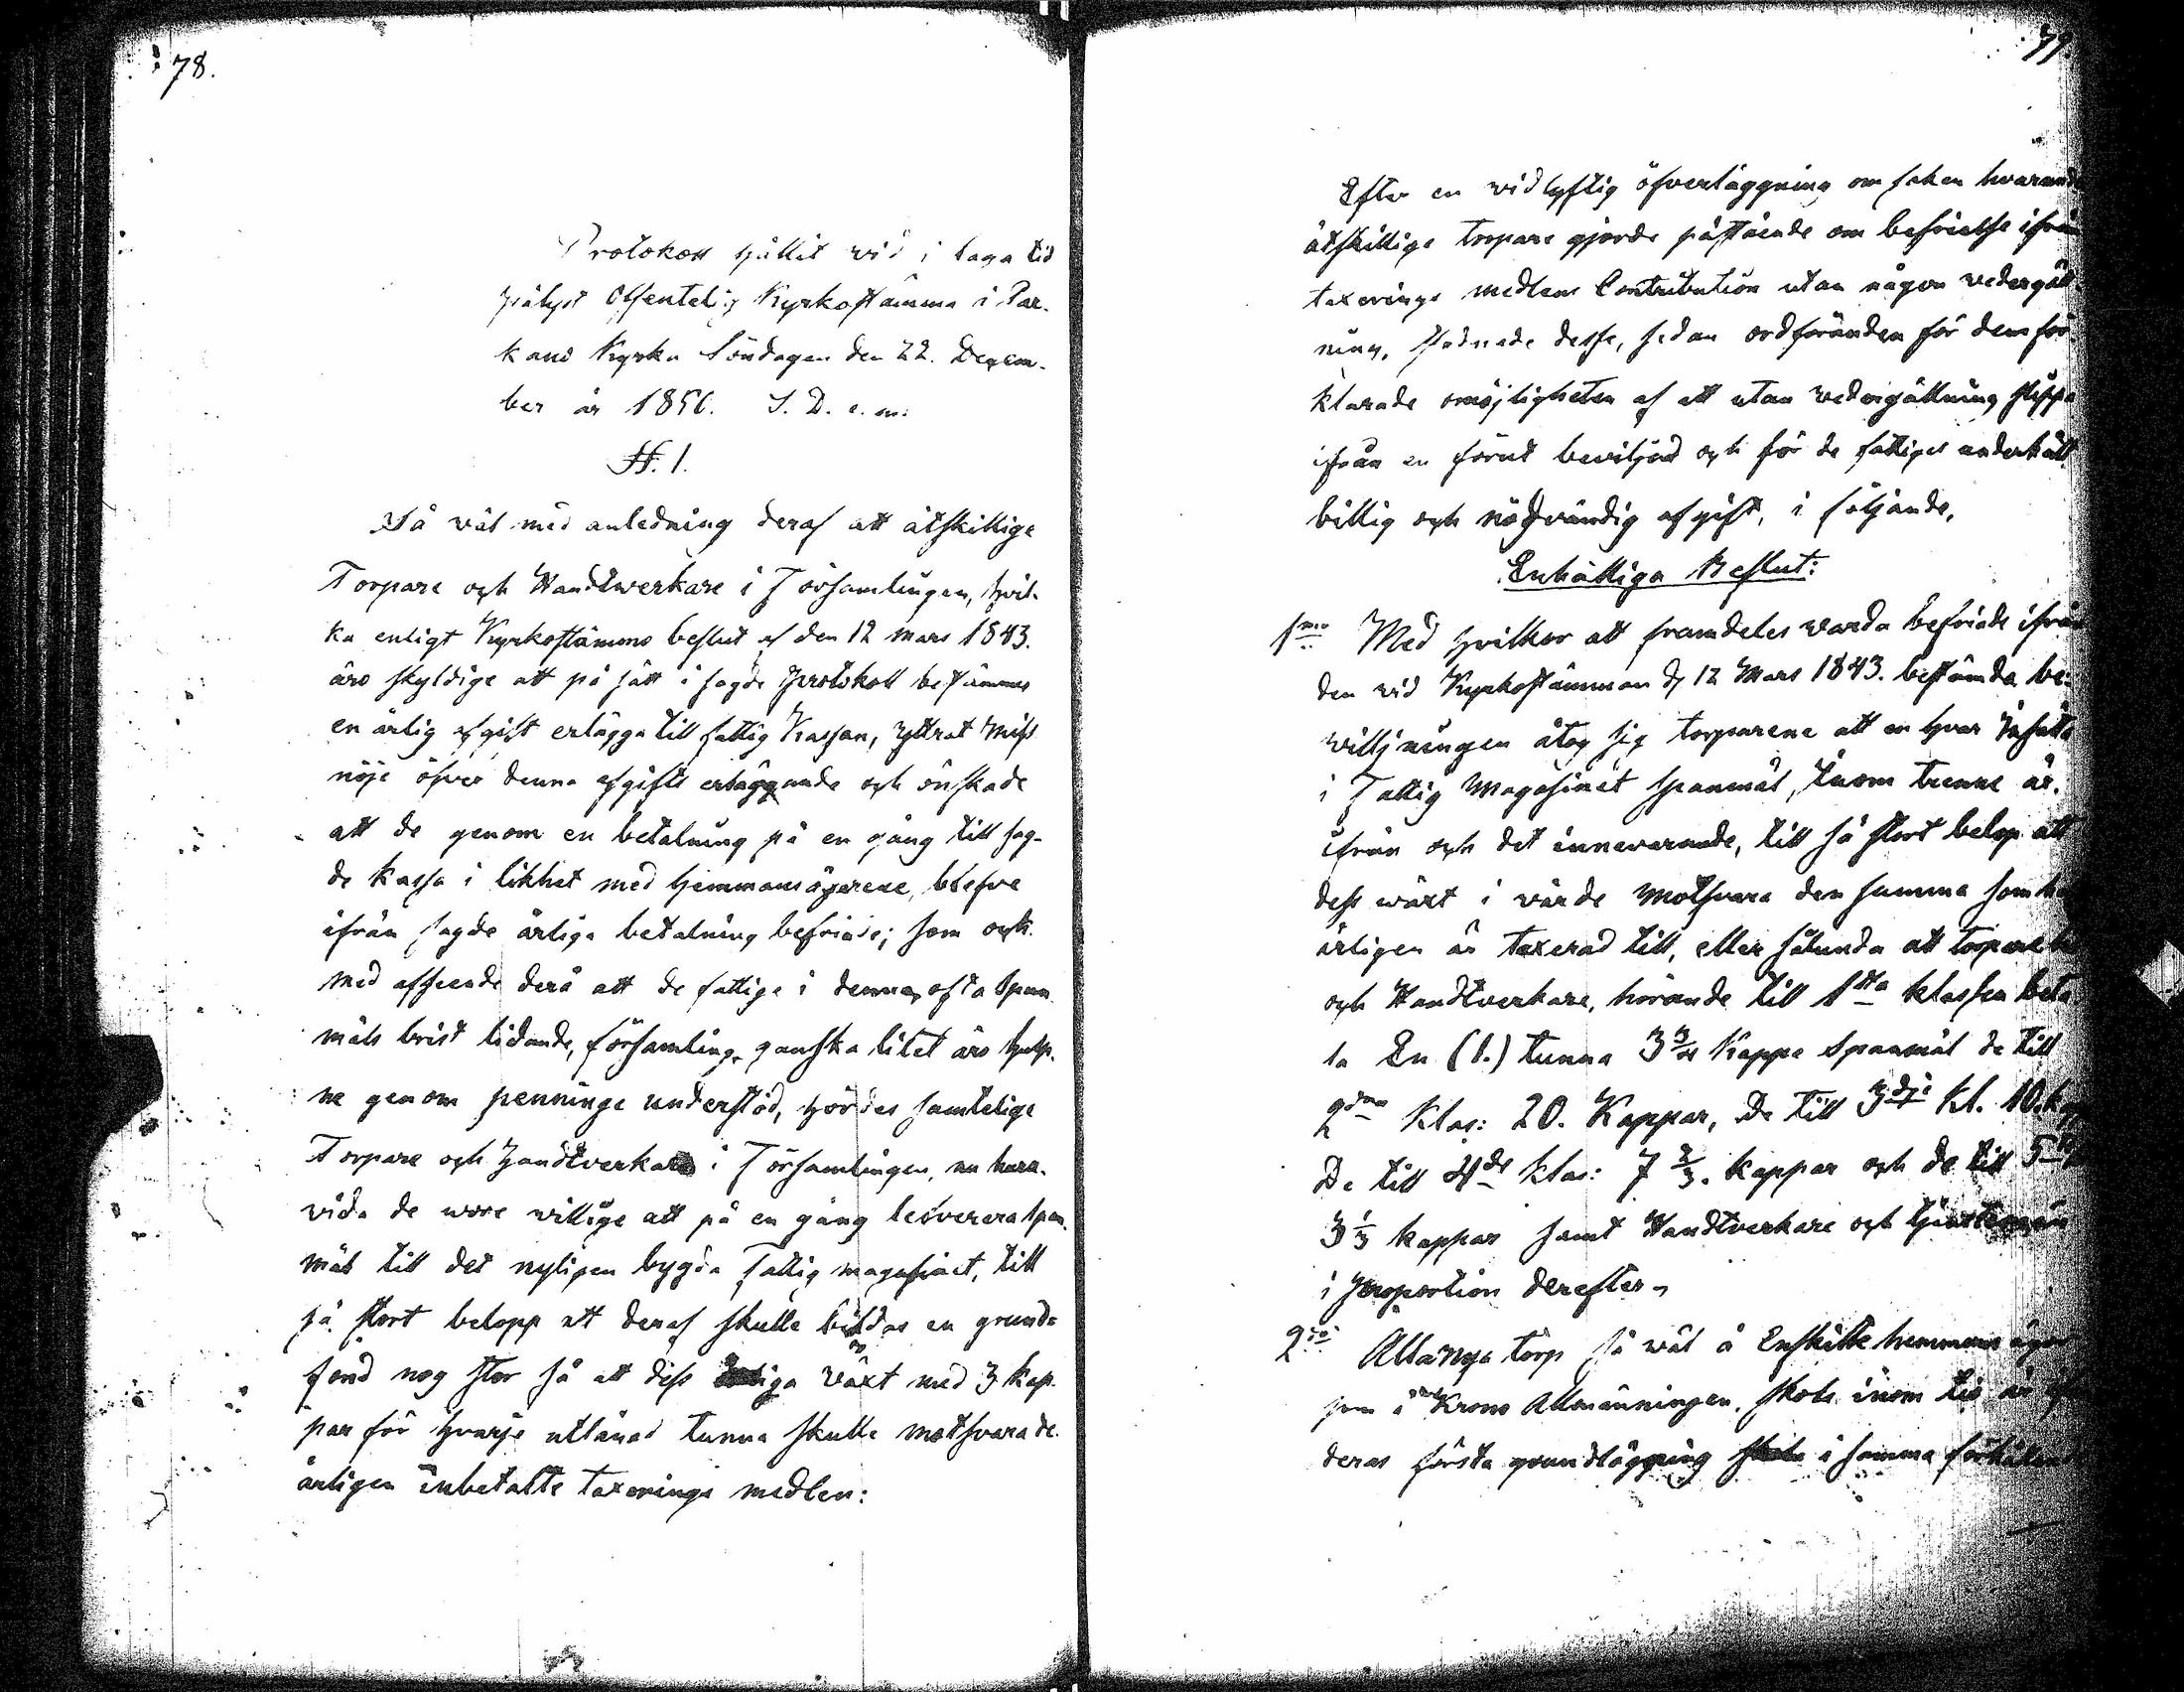 78.
Protokoll hållit vid i laga tid
pålyst Offentelig Kyrkostämma i Par-
kano Kyrka Söndagen den 22. Decem-
ber år 1850. S. D. e. m:
§. 1.
Så wäl med anledning deraf att åtskillige
Torpare och Handtwerkare i Församlingen, hvil-
ka enligt Kyrkostämmo beslut af den 12 mars 1843.
äro skyldige att på sätt i sagde protokoll bestämmes
en årlig afgift erlägga till fattig Kassan, yttrat miss
nöje öfver denna afgifts erläggande och önskade
att de genom en betalning på en gång till sag-
de kassa i likhet med hemmansägarene, blefve
ifrån sagde årliga betalning befriade; som ock
med afseende derå att de fattige i denna, ofta Span
måls brist lidande, församling, ganska litet äro hulp-
ne genom penninge understöd, hördes samtelige
Torpare och handtverkare i Församlingen, nu hura-
vida de wore willige att på en gång lefverera span-
mål till det nyligen bygda fattig magasinet, till
så stort belopp att deraf skulle bildas en grund-
fond nog stor så att dess årliga växt med 3 kap-
par för hvarje utlånad tunna skulle motsvara de
årligen inbetalte taxerings medlen:
79.
Efter en vidlyftig öfverläggning om saken hvarunder
åtskillige torpare gjorde påstående om befrielse ifrån
taxerings medlens Contribution utan någon vedergäll
ning, stadnade desse, sedan ordföranden för dem för-
klarade omöjligheten af att utan vedergällning slippa
ifrån en förut beviljad och för de fattiges underhåll
billig och nödvändig afgift, i följande,
Enhälliga Beslut:
1mo Med hvilkor att framdeles varda befriade ifrån
den vid Kyrkostämman d. 12 Mars 1843. bestämda be-
willjningen åtog sig torparene att en hvar insätta
i Fattig Magasinet spanmål, inom trenne år,
ifrån och det innevarande, till så stort belop att
dess wäxt i värde motsvara den summa som
årligen är taxerad till, eller sålunda att torpare
och Handtverkare, hörande till 1sta klassen beta
la En (1.) tunna 3 3/4 Kappe Spanmål de till
2dra Klas: 20. Kappar, De till 3dje kl. 10. kap
De till 4de klas: 7 2/3. kappar och de till 5te
3 1/3 kappar samt Handtverkare och tjenstemän
i proportion derefter.
2do Alla nya torp så wäl å Enskilte hemmans ägor
som å Krono Allmänningen, skola inom tio år
deras första grundläggning i samma förhållande